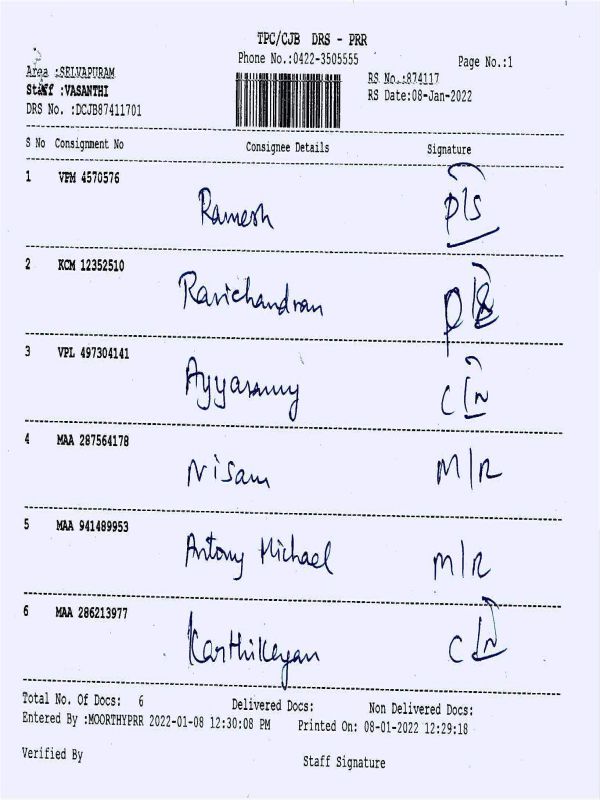 TPC/CJB DRS - PRR
Phone No.:0422-3505555
Page No.:1
Area :SELVAPURAM
Staff :VASANTHI
DRS No. :DCJB87411701
RS No.:874117
RS Date:08-Jan-2022
S No Consignment No Consignee Details Signature
1 VPM 4570576
Ramesh P/S
2 KCM 12352510
Ravichandran P/S
3 VPL 497304141
Ayyasamy C/N
4 MAA 287564178
Nisam M/R
5 MAA 941489953
Antony Michael M/R
6 MAA 286213977
Karthikeyan C/N
Total No. Of Docs: 6 Delivered Docs: Non Delivered Docs:
Entered By :MOORTHYPRR 2022-01-08 12:30:08 PM Printed On: 08-01-2022 12:29:18
Verified By Staff Signature